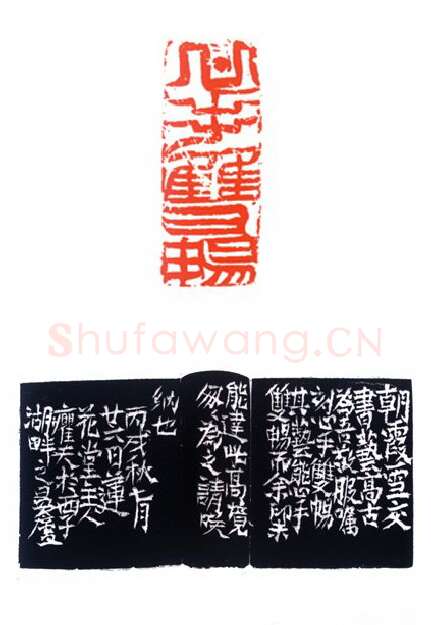 心手雙暢
Shufawang.CN
朝霞雪交
書藝高古
為吾服囑
刻心手雙暢
其藝能心手
雙暢而余卻未
能達此高境
匆為之請
納也
丙戌秋七月
廿六日蓮
花堂主人
癯夫於西子
湖畔之廬